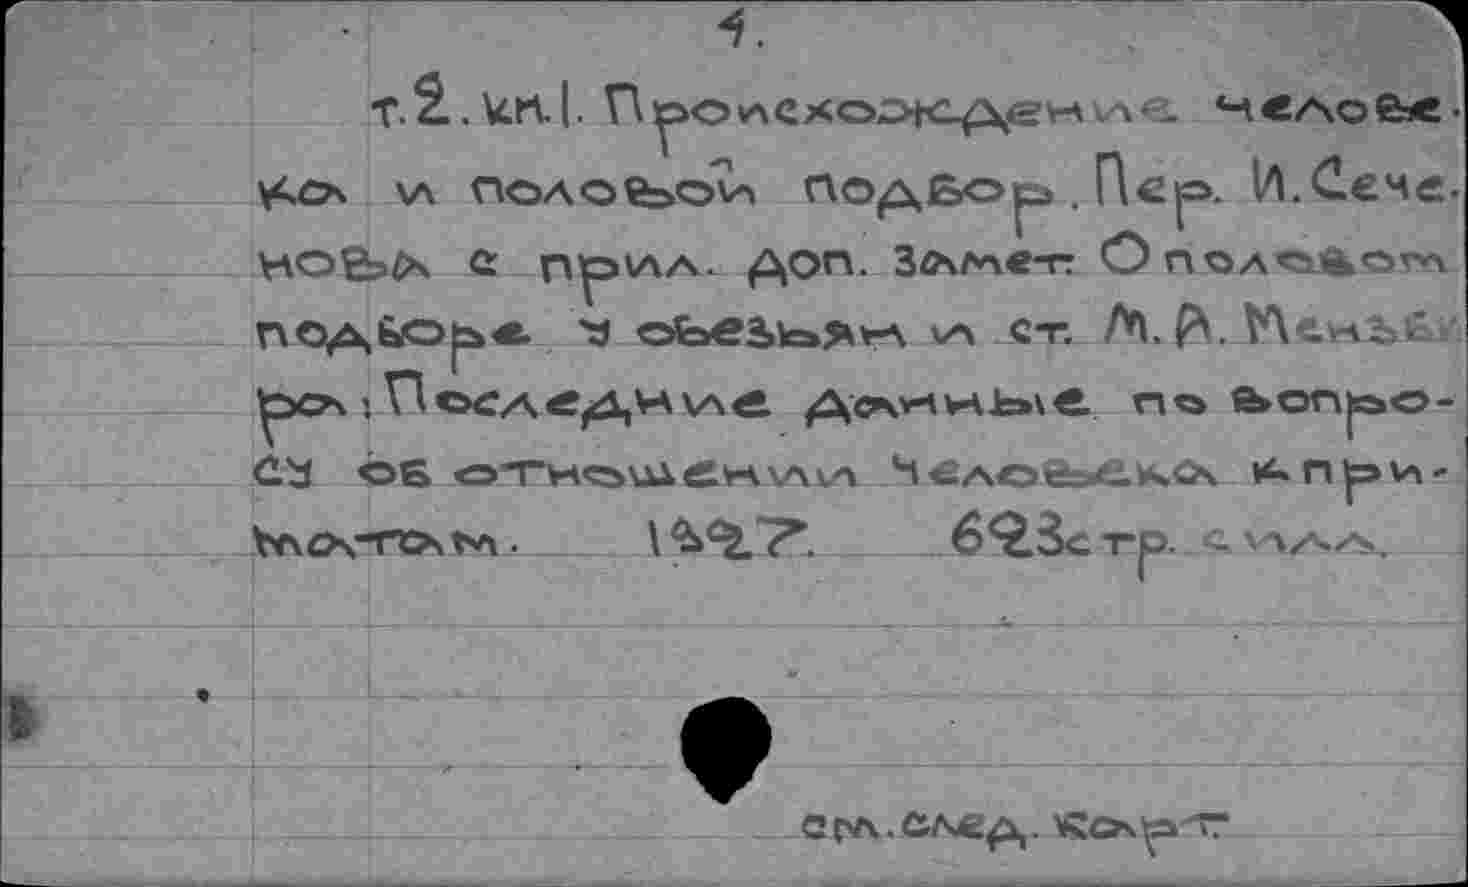 4.
т.2. кн.1. Происхождение челове-
ка и половой подбор. Пер. И. Сече-
нова с прил. доп. Замет: О половом
подборе у обезьян и ст. М.А. Мензби
ра: Последние данные по вопро-
су об отношении человека к при-
матам. 1927. 623стр. с илл.
см. след. карт.